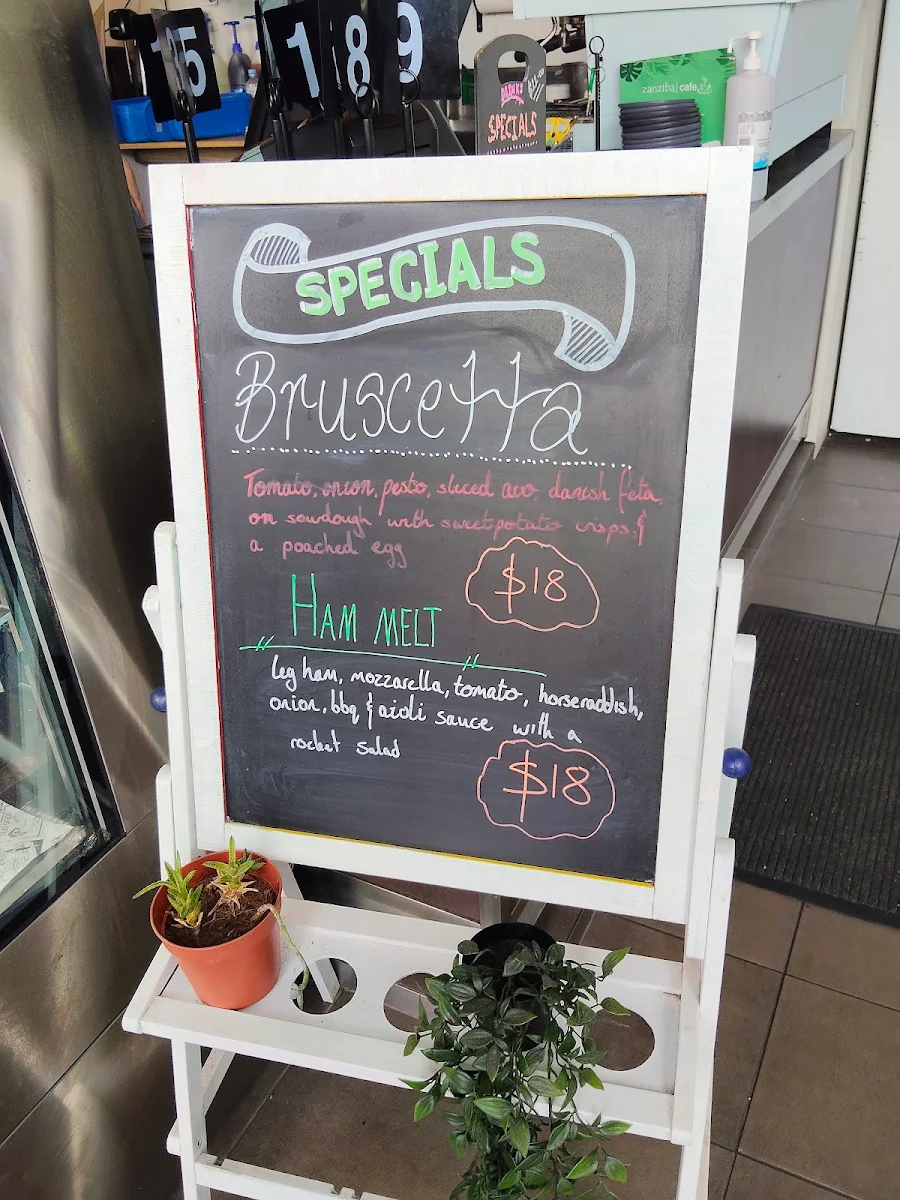 15
1
8
9
SPECIALS
zanziba| cafe
SPECIALS
Bruscetta
Tomato, onion, pesto, sliced avo, danish feta,
on sourdough with sweetpotato crisps &
a poached egg
$18
HAM MELT
leg ham, mozzarella, tomato, horseraddish,
onion, bbq & aioli sauce with a
rocket salad
$18